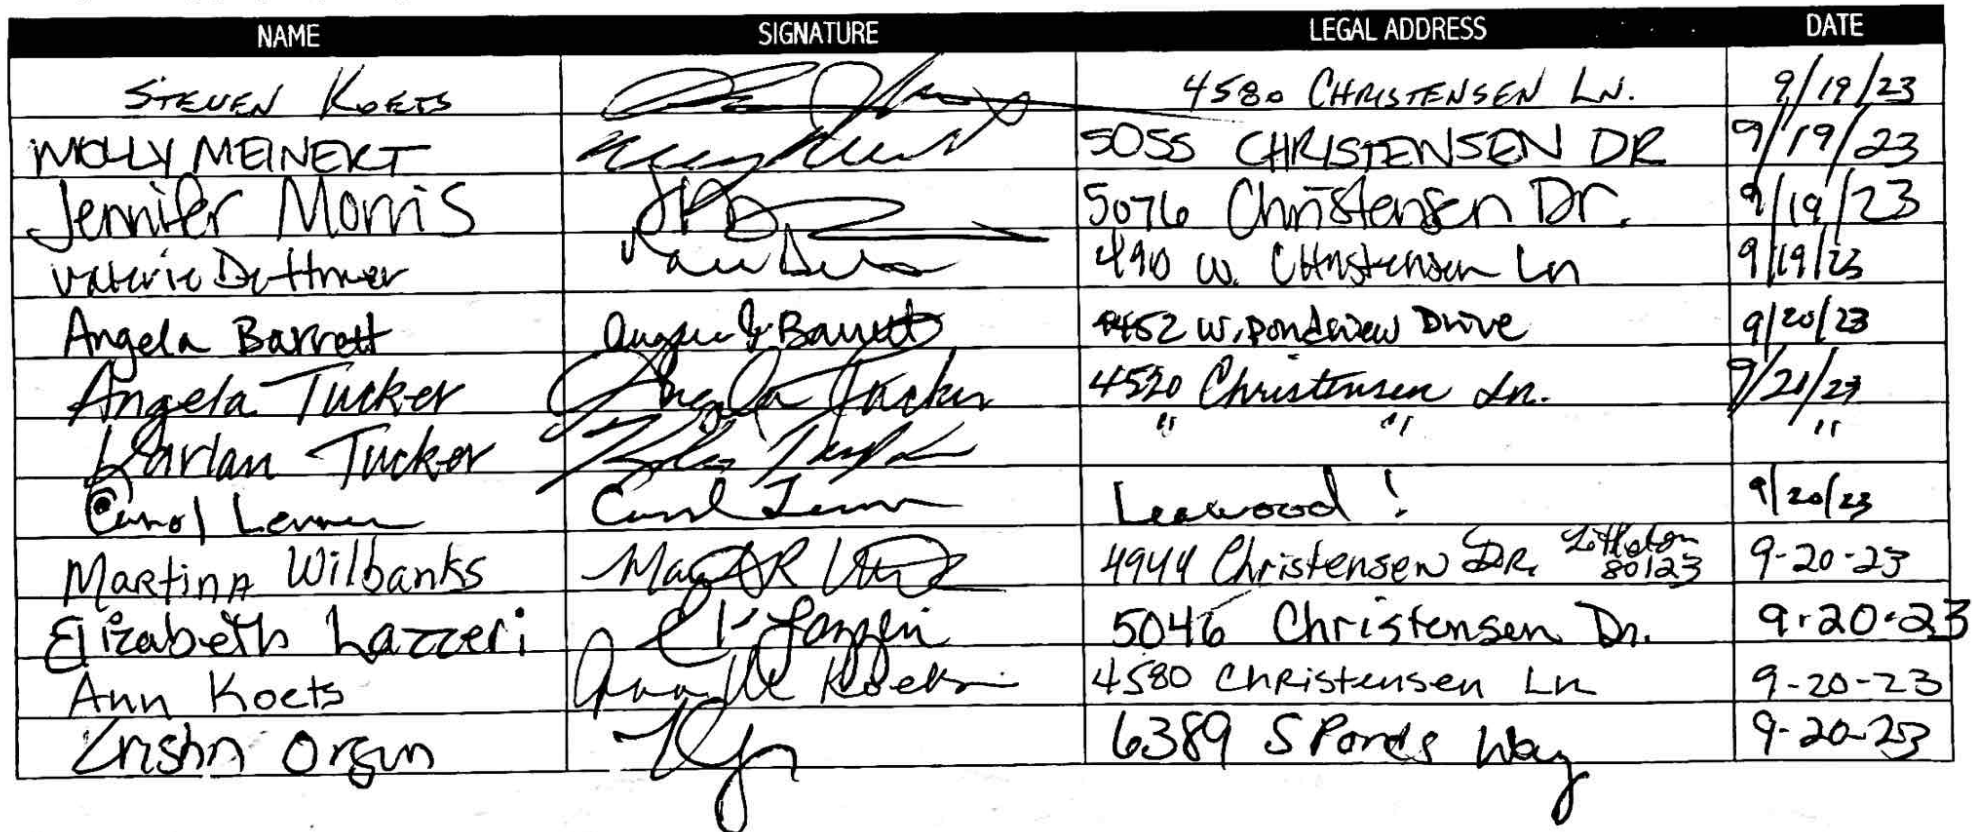 NAME SIGNATURE LEGAL ADDRESS DATE
STEVEN KOETS 4580 CHRISTENSEN LN. 9/19/23
MOLLY MEINERT 5055 CHRISTENSEN DR 9/19/23
Jennifer Morris 5076 Christensen Dr. 9/19/23
Valerie Dettmer W. Christensen Ln 9/19/23
Angela Barrett Angela Barrett W. Pondview Drive 9/20/23
Angela Tucker Angela Tucker 4520 Christensen Ln. 9/20/23
Harlan Tucker " " "
Carol Carol Leawood! 9/20/23
Martina Wilbanks 4944 Christensen DR. Littleton 80123 9-20-23
Elizabeth Lazzeri Lazzeri 5046 Christensen Dr. 9-20-23
Ann Koets Koets 4580 Christensen Ln 9-20-23
Kristin 6389 S Ponds Way 9-20-23